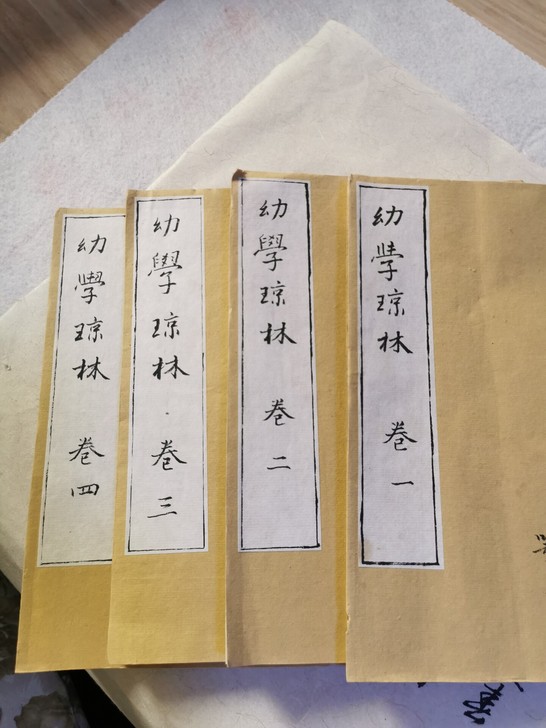 幼學琼林 卷一
幼學琼林 卷二
幼學琼林·卷三
幼學琼林 卷四